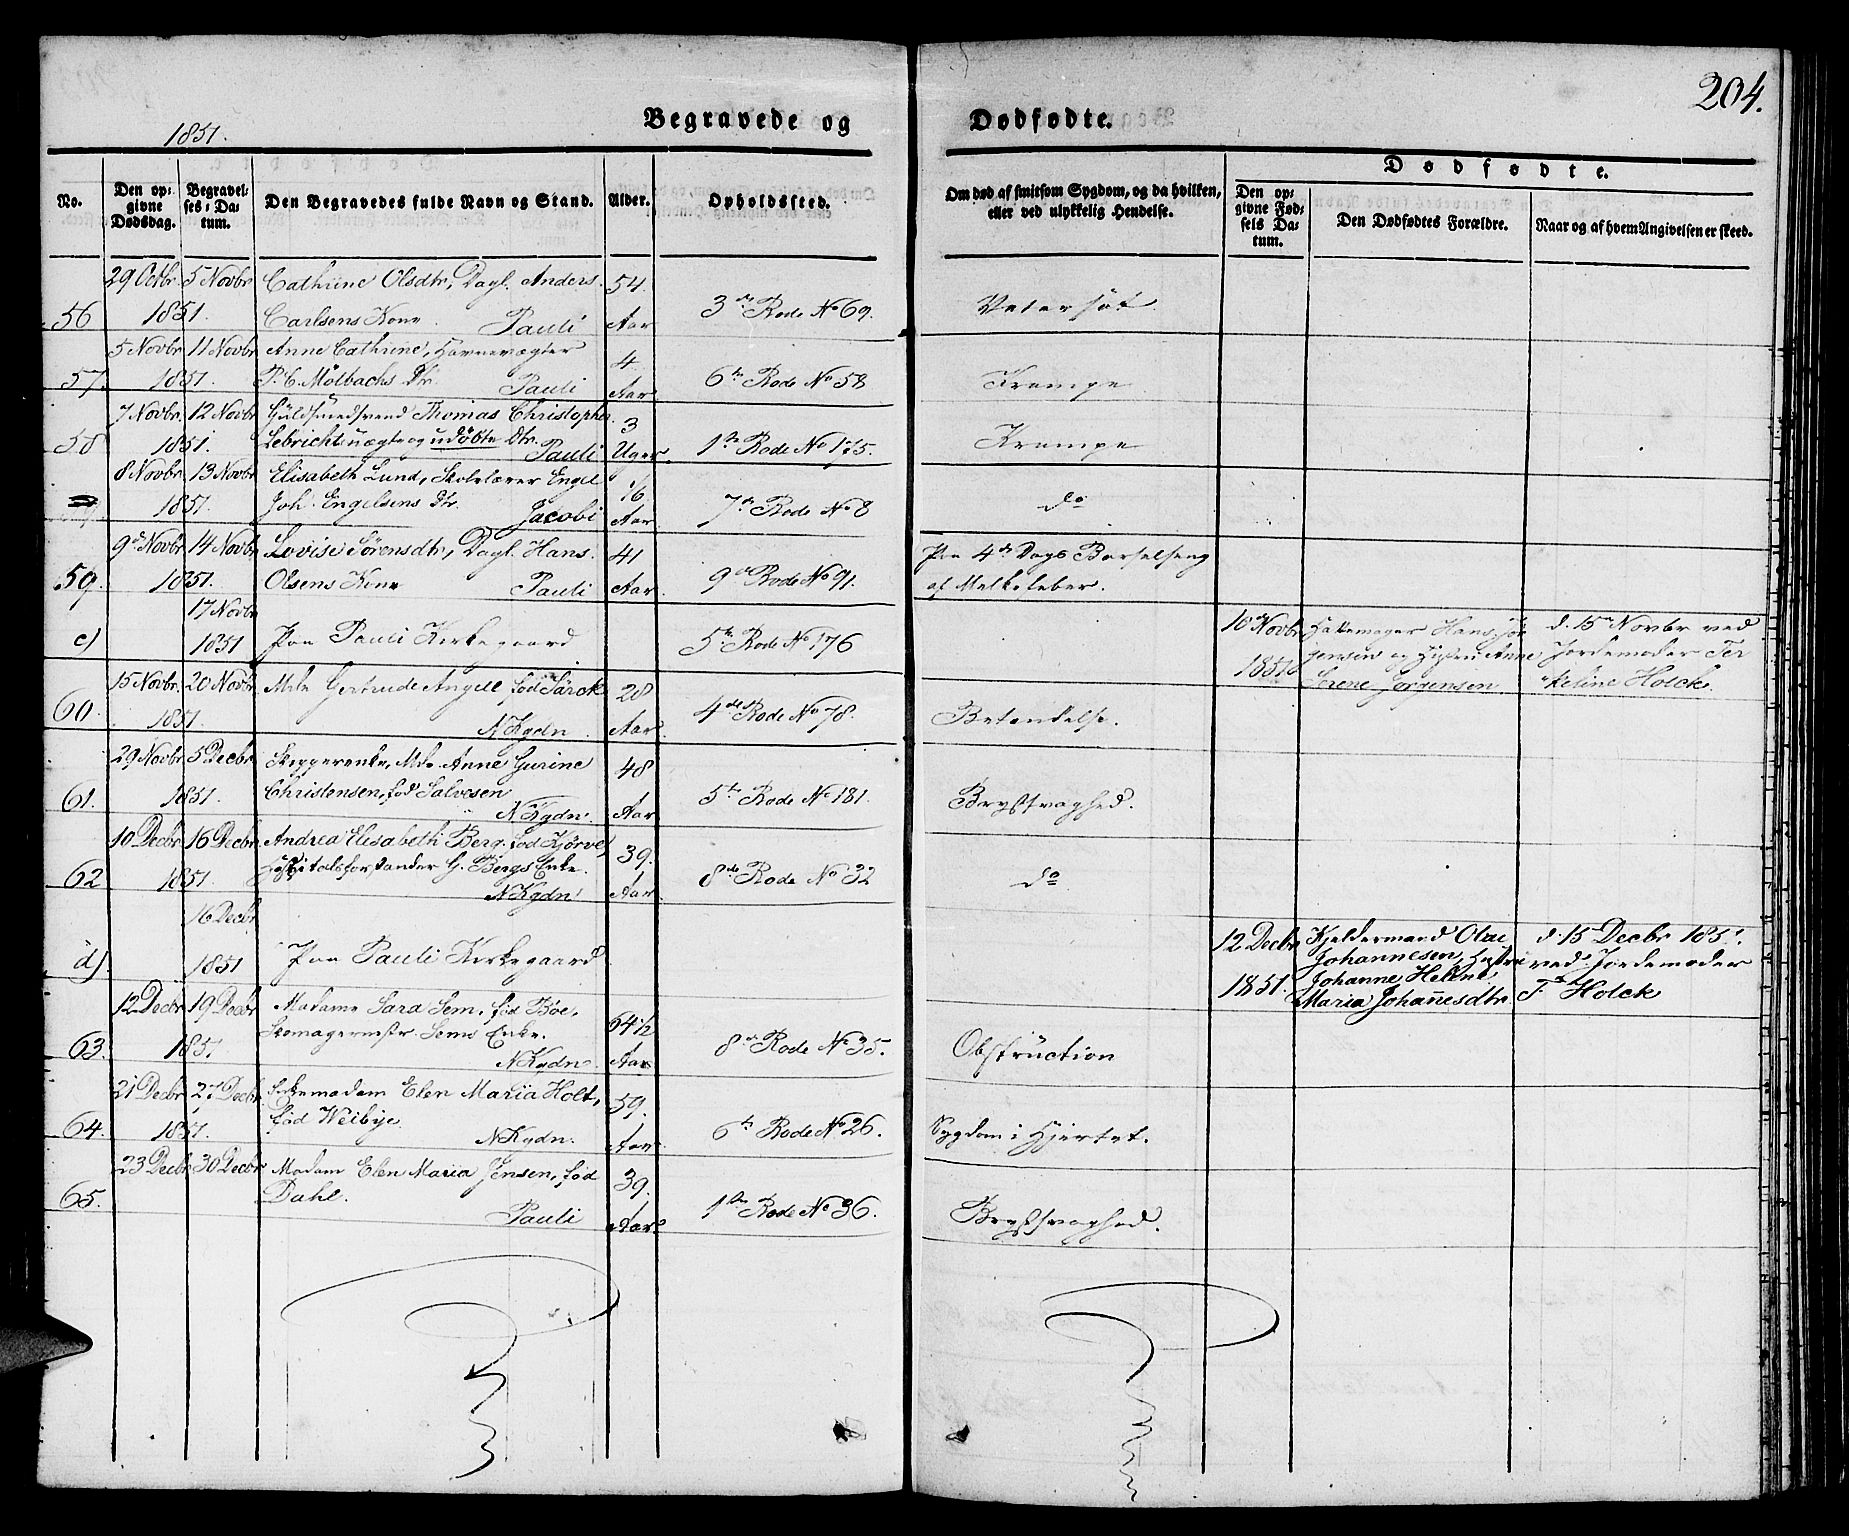 204.
1851.
Begravede og
Dødfødte.
No.
Den op-
givne
Dødsdag.
Begravel-
ses-Da-
tum.
Den Begravedes fulde Navn og Stand.
Alder.
Opholdssted.
Om død af smitsom Sygdom, og da hvilken,
eller ved ulykkelig Hendelse.
Dødfødte.
Den op-
givne Fød-
sels Da-
tum.
Den Dødfødtes Forældre.
Naar og af hvem Angivelsen er skeed.
29 Octbr 5 Novbr Cathrine Olsdtr, Dagl. Anders 54
56 1851. Carlsens Kone Pauli Aar 3die Rode No 69. Vatersot
5 Novbr 11 Novbr Anne Cathrine, Havnevægter 4
57. 1851. P. C. Mölbachs Dtr. Pauli Aar 6te Rode No 58 Krampe
7 Novbr. 12 Novbr Guldsmedsvend Thomas Christopher 3
58 1851. Lebricht uægte og udöbte Dtr. Pauli Uger. 1ste Rode No 175. Krampe
8 Novbr. 13 Novbr Elisabeth Lund, Skolelærer Engel 1/6
1851. Joh. Engelsens Dtr. Jacobi Aar 7de Rode No 8 do
9de Novbr 14 Novbr Lovise Sörensdtr, Dagl. Hans 41
59. 1851. Olsens Kone Pauli Aar. 9de Rode No 91. Paa 4de Dags Barselseng
af Melkefeber.
17 Novbr
c) 1851 Paa Pauli Kirkegaard 5te Rode No 176
10de Novbr 1851 Hattemager Hans Jör
gensen og Hustru Anne
Serene Jörgensen
d. 15de Novbr ved
Jordemoder Ter
keline Holck.
15 Novbr. 20 Novbr Mde Gertrude Angell, fød Särck 28
60. 1851. N Kgdn Aar. 4de Rode No 78. Betændelse.
29 Novbr 5 Decbr Skipperenke, Mde Anne Gurine 48
61. 1851. Christensen, fød Salvesen N Kgdn. Aar 5te Rode No 181. Brystsvaghed.
10 Decbr 16 Decbr Andrea Elisabeth Berg, fød Kjörve, 39.
62 1851. Hospitalsforstander G. Bergs Enke. N Kgdn Aar 8de Rode No 32 do
16 Decbr
d) 1851 Paa Pauli Kirkegaard
12 Decbr 1851. Kjeldermand Olai
Johannesen, Hustru
Johanne Helene
Maria Johannesdtr.
d. 15 Decbr 1851.
ved Jordemoder
T Holck
12 Decbr 19 Decbr Madame Sara Sem, fød Böe, 64 1/2
63. 1851 Skomagermestr. Sems Enke. N Kgdn Aar 8de Rode No 35. Obstruction
21 Decbr 27 Decbr Enkemadam Elen Maria Holt, 59.
64. 1851. fød Weibye N Kgdn. Aar 6te Rode No 26. Sygdom i Hjertet.
23 Decbr 30 Decbr Madam Elen Maria Jensen, fød 39.
65. Dahl. Pauli Aar 1ste Rode No 36. Brystsvaghed.